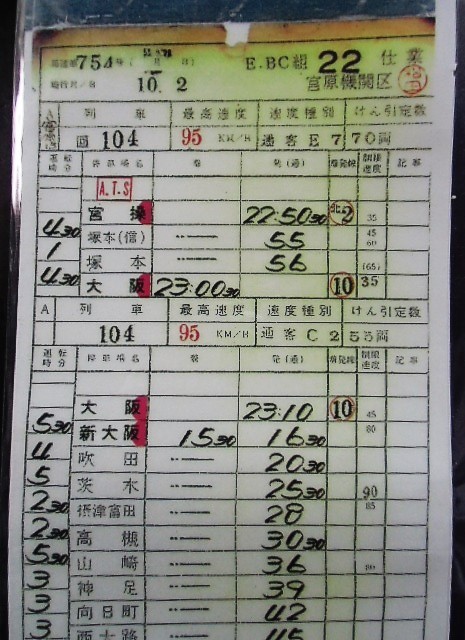 754
E.BC組 22 仕業
10. 2 宮原機関区
A 列車 最高速度 速度種別 けん引定数
回 104 95 KM/H 通客 E 7 70両
運転時分 停車場名 着 発(通) 着発線 制限速度 記事
A.T.S
宮操 22:50 30 北2 35
4 30 塚本(信) 55 45 60
1 塚本 56 (65)
4 30 大阪 23:00 30 10 35
A 列車 最高速度 速度種別 けん引定数
104 95 KM/H 通客 C 2 55両
運転時分 停車場名 着 発(通) 着発線 制限速度 記事
大阪 23:10 10 45
5 30 新大阪 15 30 16 30 80
4 吹田 20 30
5 茨木 25 30 90
2 30 摂津富田 28 85
2 30 高槻 30 30
5 30 山崎 36 80
3 神足 39
3 向日町 42
3 西大路 45